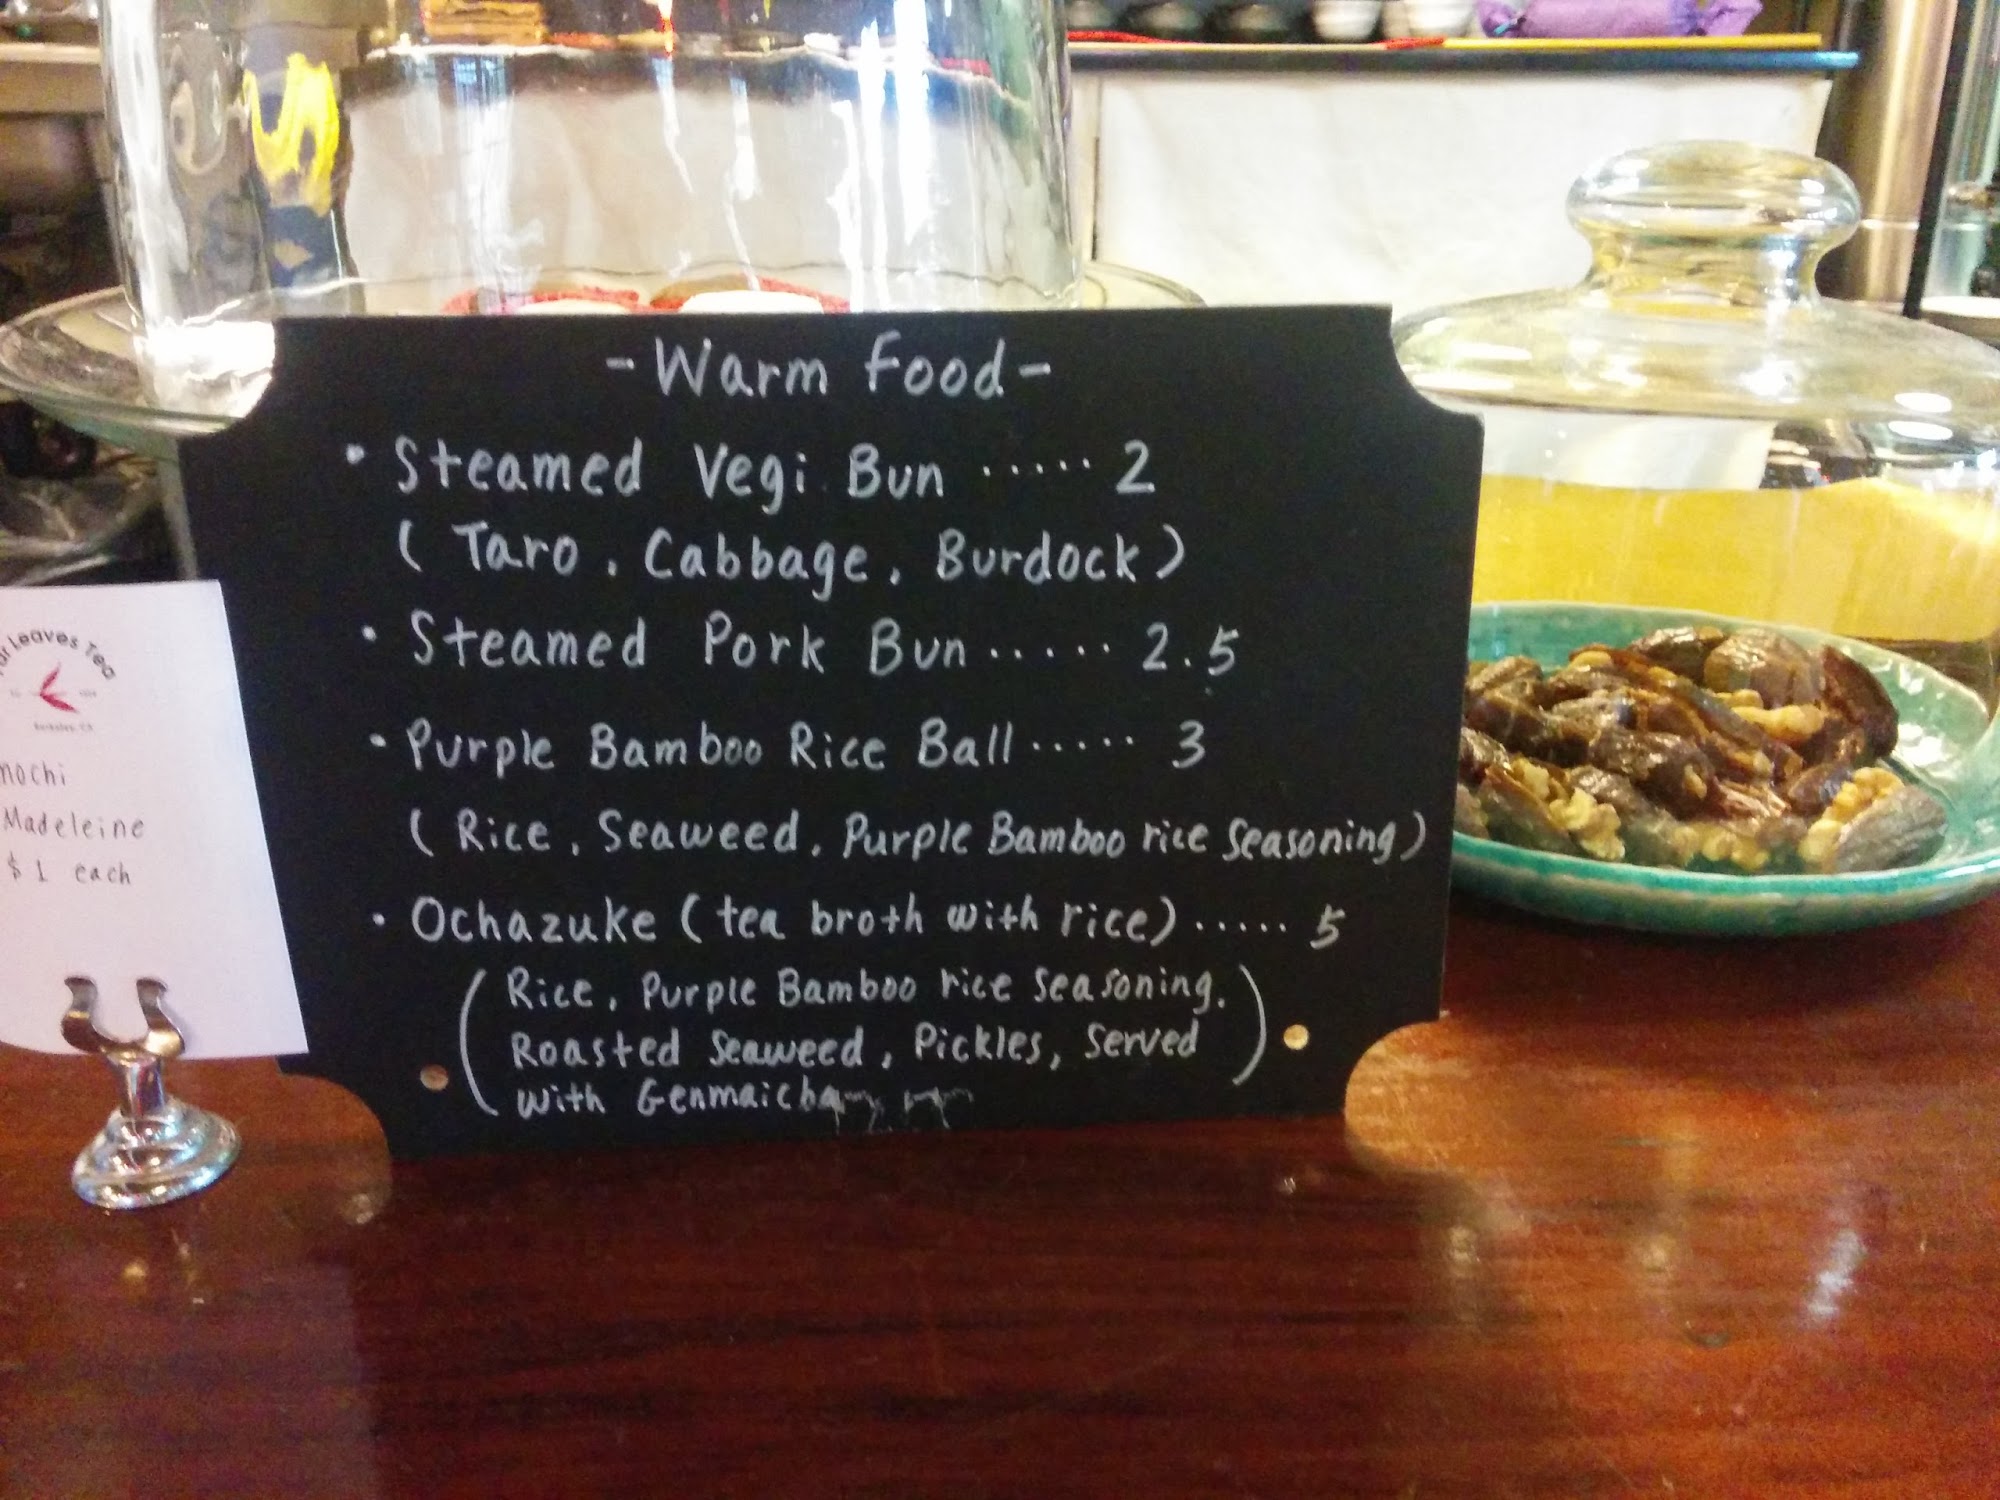 - Warm Food -
• Steamed Vegi Bun ..... 2
( Taro, Cabbage, Burdock )
• Steamed Pork Bun ..... 2.5
• Purple Bamboo Rice Ball ..... 3
( Rice, Seaweed, Purple Bamboo rice seasoning )
• Ochazuke (tea broth with rice) ..... 5
( Rice, Purple Bamboo rice seasoning.
Roasted Seaweed, Pickles, Served )
with Genmaicha
Leaves Tea
Berkeley, CA
mochi
Madeleine
$1 each